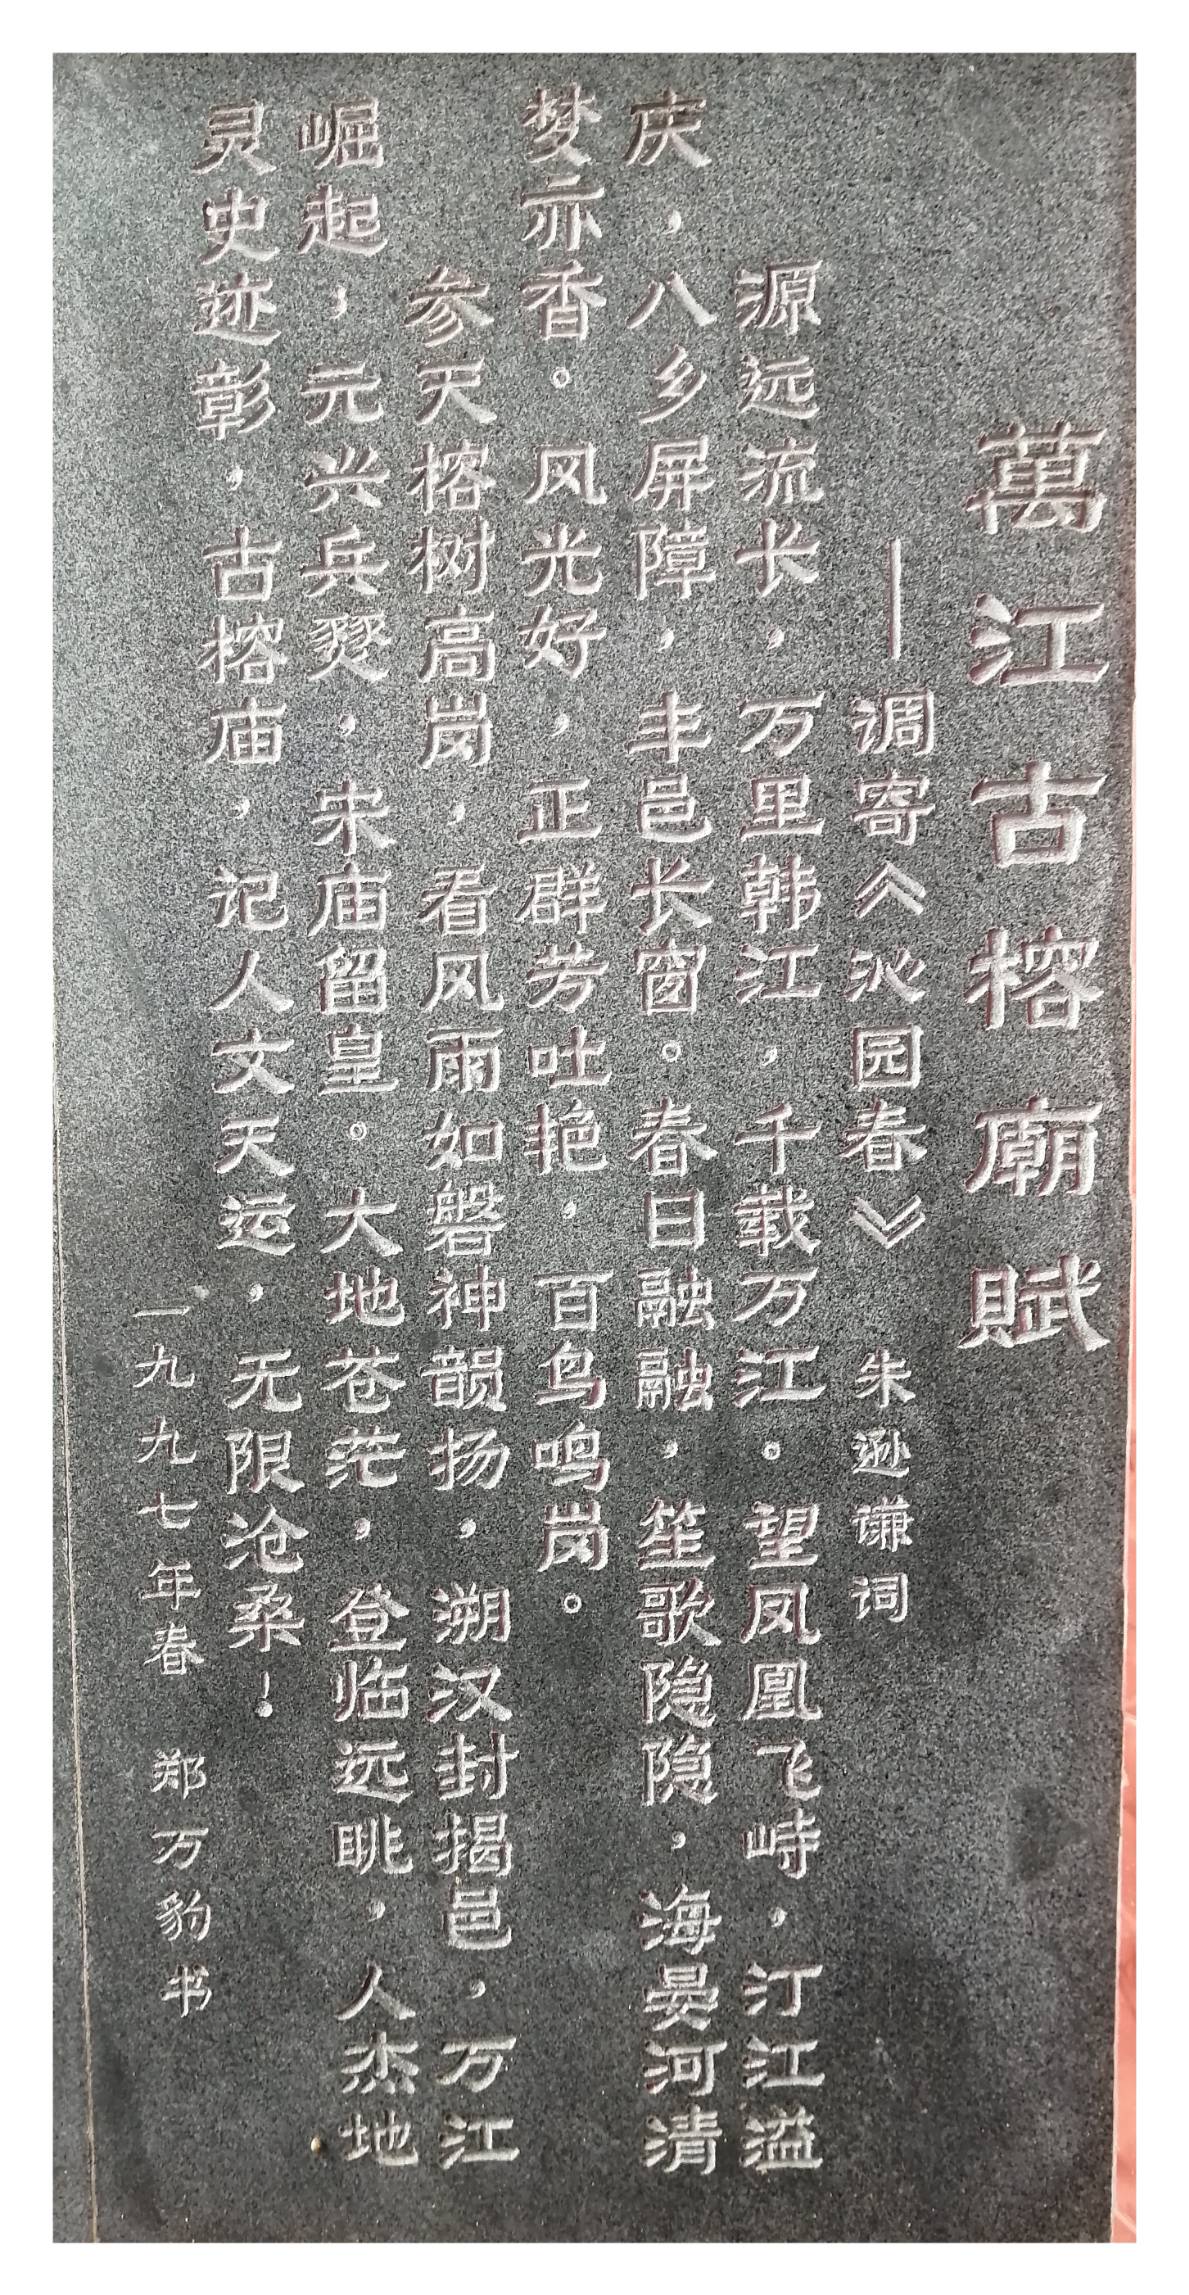 萬江古榕廟賦
——调寄《沁园春》 朱逊谦词
源远流长，万里韩江，千载万江。望凤凰飞峙，汀江溢
庆，八乡屏障，丰邑长窗。春日融融，笙歌隐隐，海晏河清
梦亦香。风光好，正群芳吐艳，百鸟鸣岗。
参天榕树高岗，看风雨如磐神韻扬，溯汉封揭邑，万江
崛起，元兴兵燹，宋庙留皇。大地苍茫，登临远眺，人杰地
灵史迹彰，古榕庙，记人文天运，无限沧桑！
一九九七年春 郑万豹书